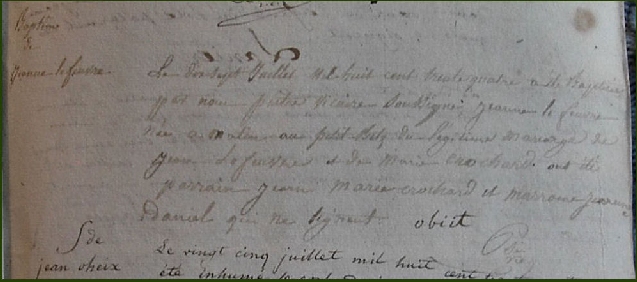 Baptême
de
jeanne le feuvre
Le dix sept juillet mil huit cent trente quatre a été Baptisée
par nous prêtre vicaire Soussigné jeanne le feuvre
née ce matin au petit du légitime mariage de
jean Lefeuvre et de marie crochard ont été
parrain jean marie crochard et marraine jeanne
danial qui ne signent obiit
S de
jean oheix
Le vingt cinq juillet mil huit cent
été inhumé